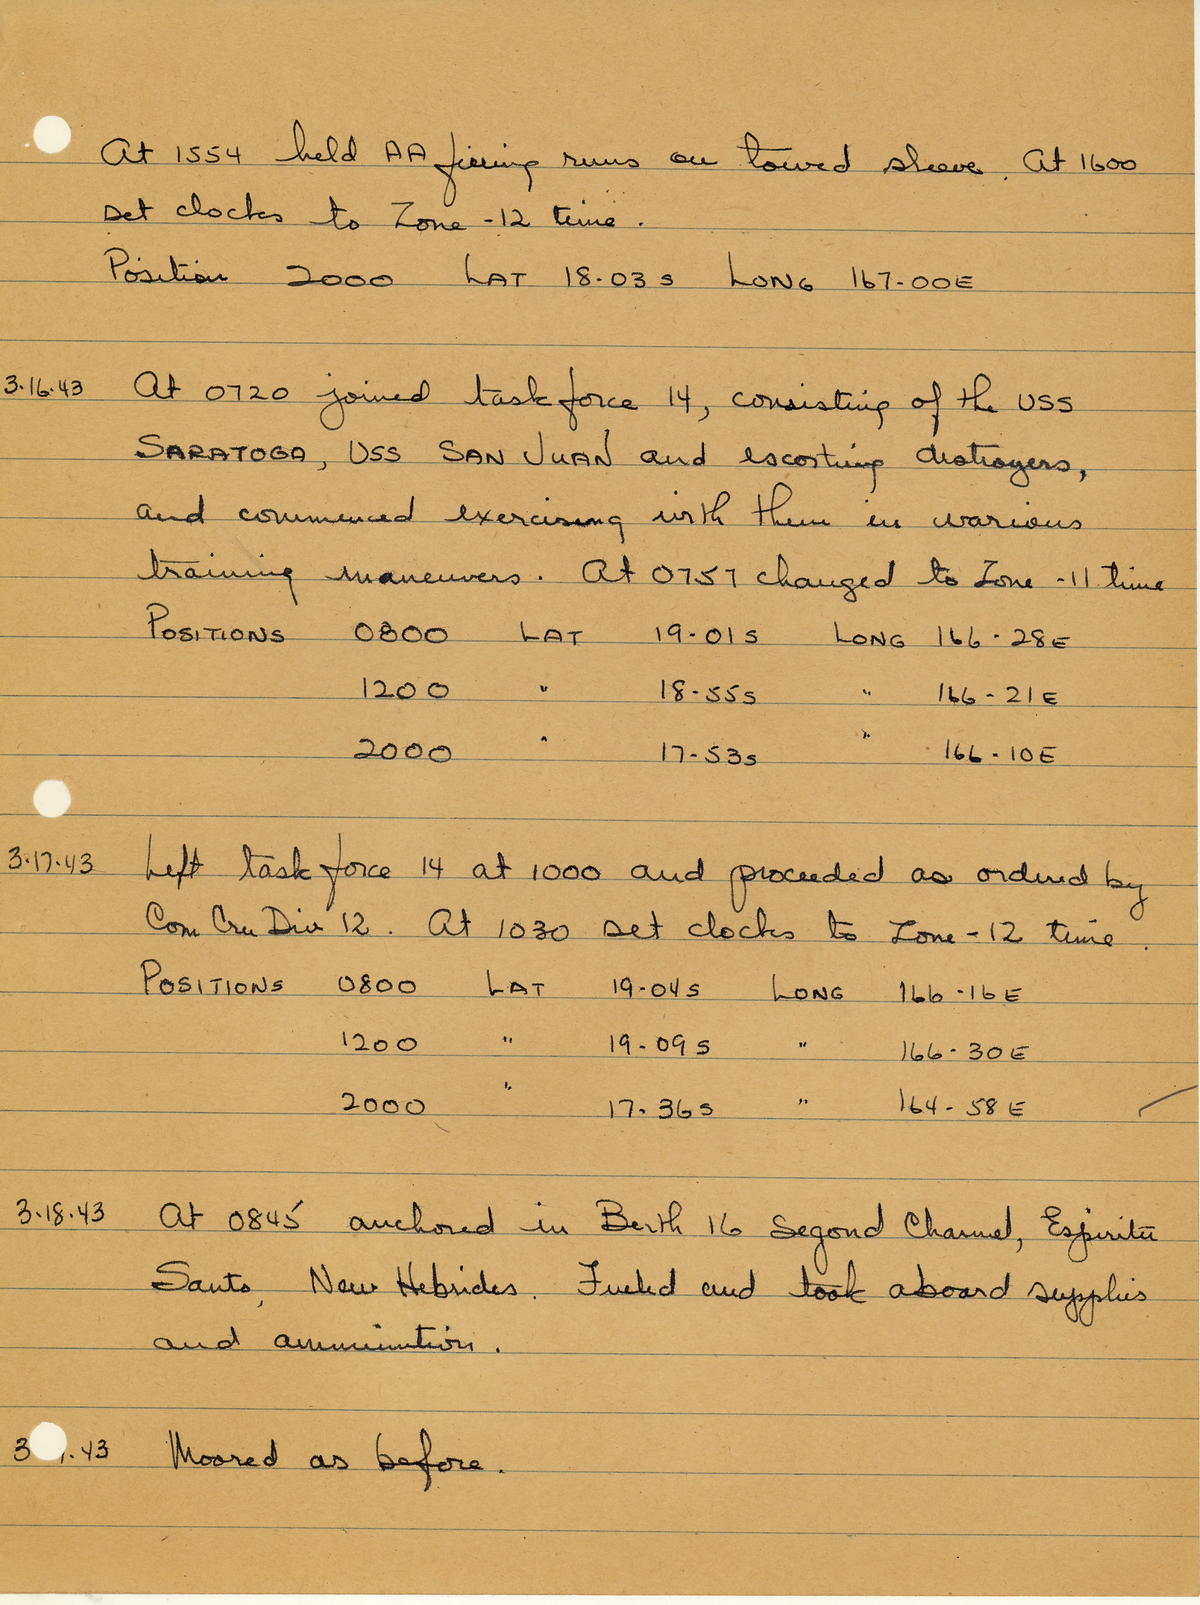 At 1554 held AA firing runs on towed sleeve. At 1600
set clocks to Zone -12 time.
Position 2000 LAT 18-03S LONG 167-00E
3-16-43 At 0720 joined task force 14, consisting of the USS
SARATOGA, USS SAN JUAN and escorting destroyers,
and commenced exercising with them in various
training maneuvers. At 0757 changed to Zone -11 time
POSITIONS 0800 LAT 19-01S LONG 166-28E
1200 " 18-55S " 166-21E
2000 " 17-53S " 166-10E
3-17-43 Left task force 14 at 1000 and proceeded as ordered by
Com Cru Div 12. At 1030 set clocks to Zone -12 time.
POSITIONS 0800 LAT 19-04S LONG 166-16E
1200 " 19-09S " 166-30E
2000 " 17-36S " 164-58E
3-18-43 At 0845 anchored in Berth 16 Segond Channel, Espiritu
Santo, New Hebrides. Fueled and took aboard supplies
and ammunition.
3 .43 Moored as before.